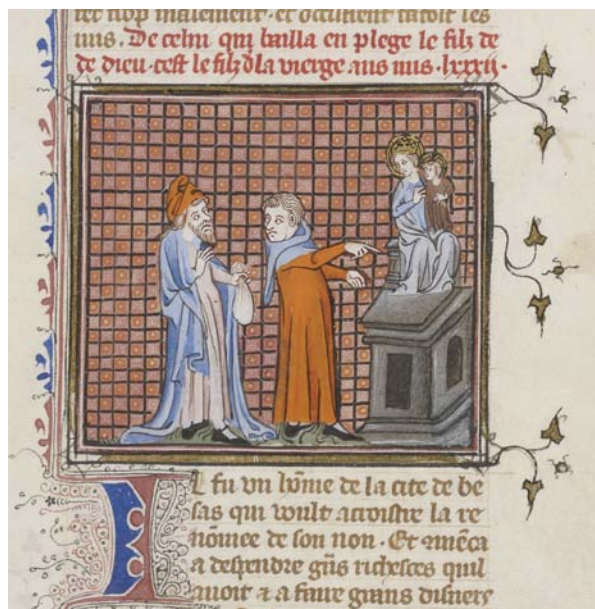 nop malement · et occistrent tatost les
nus . De celui qui bailla en plege le filz de
de dieu · cest le filz dla vierge aus nus · lxxxij ·
Il fu vn home de la cite de be
sas qui voult acroistre la re
nomee de son non · Et amēca
a despendre gñs richesces quil
auoit ⁊ a faire grans disners